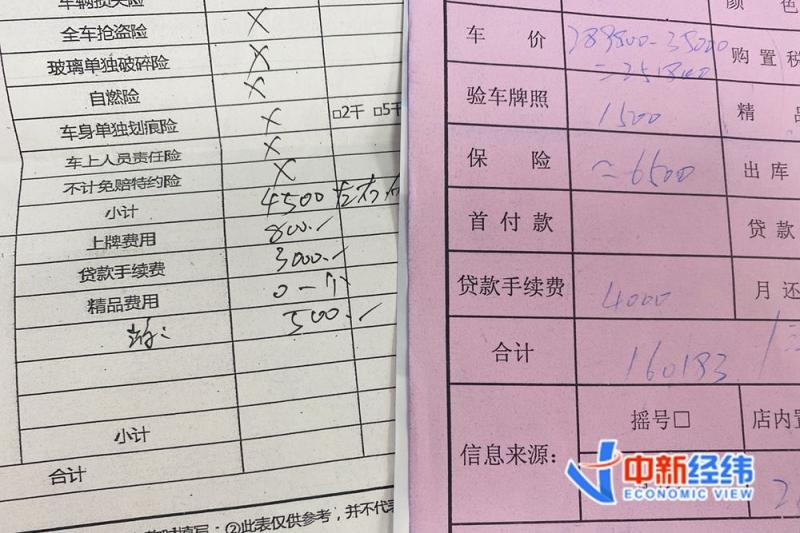 车辆损失险
全车抢盗险 X
玻璃单独破碎险 X
自燃险 X
车身单独划痕险 X □2千 □5千
车上人员责任险 X
不计免赔特约险 X
小计 4500左右
上牌费用 800.
贷款手续费 3000.
精品费用 0一个
500.
小计
合计
②此表仅供参考，并不代表
颜 色
车 价 289800-38000
=251800
购置税
验车牌照 1500 精 品
保 险 ≈6500 出 库
首付款 贷 款
贷款手续费 4000 月 还
合计 160183
信息来源： 摇号□ 店内置
中新经纬
ECONOMIC VIEW